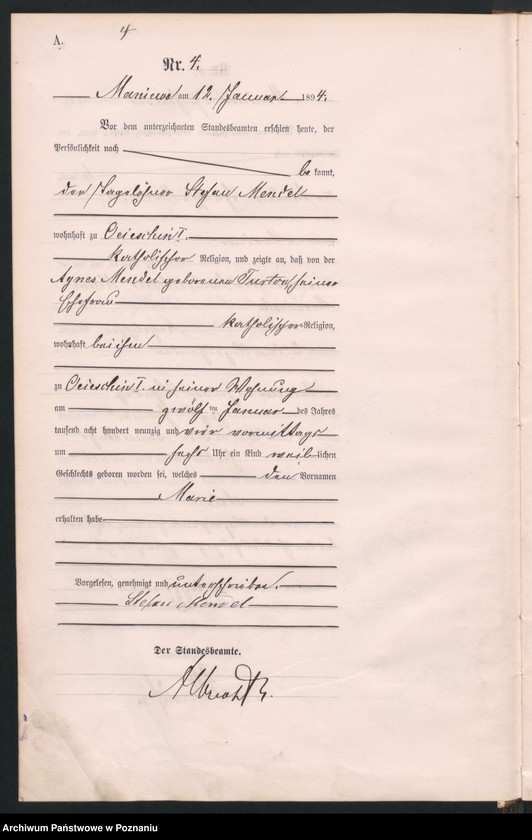 A.
4
Nr. 4.
Maniewo am 12. Januar 1894.
Vor dem unterzeichneten Standesbeamten erschien heute, der
Persönlichkeit nach
be kannt,
der Tagelöhner Stefan Mendel
wohnhaft zu Ocieschin I.
katholischer Religion, und zeigte an, daß von der
Agnes Mendel geborenen seiner
Ehefrau
katholischer Religion,
wohnhaft bei ihm
zu Ocieschin I. in seiner Wohnung
am zwölften Januar des Jahres
tausend acht hundert neunzig und vier vormittags
um sechs Uhr ein Kind weiblichen
Geschlechts geboren worden sei, welches den Vornamen
Marie
erhalten habe
Vorgelesen, genehmigt und unterschrieben.
Stefan Mendel
Der Standesbeamte.
Archiwum Państwowe w Poznaniu